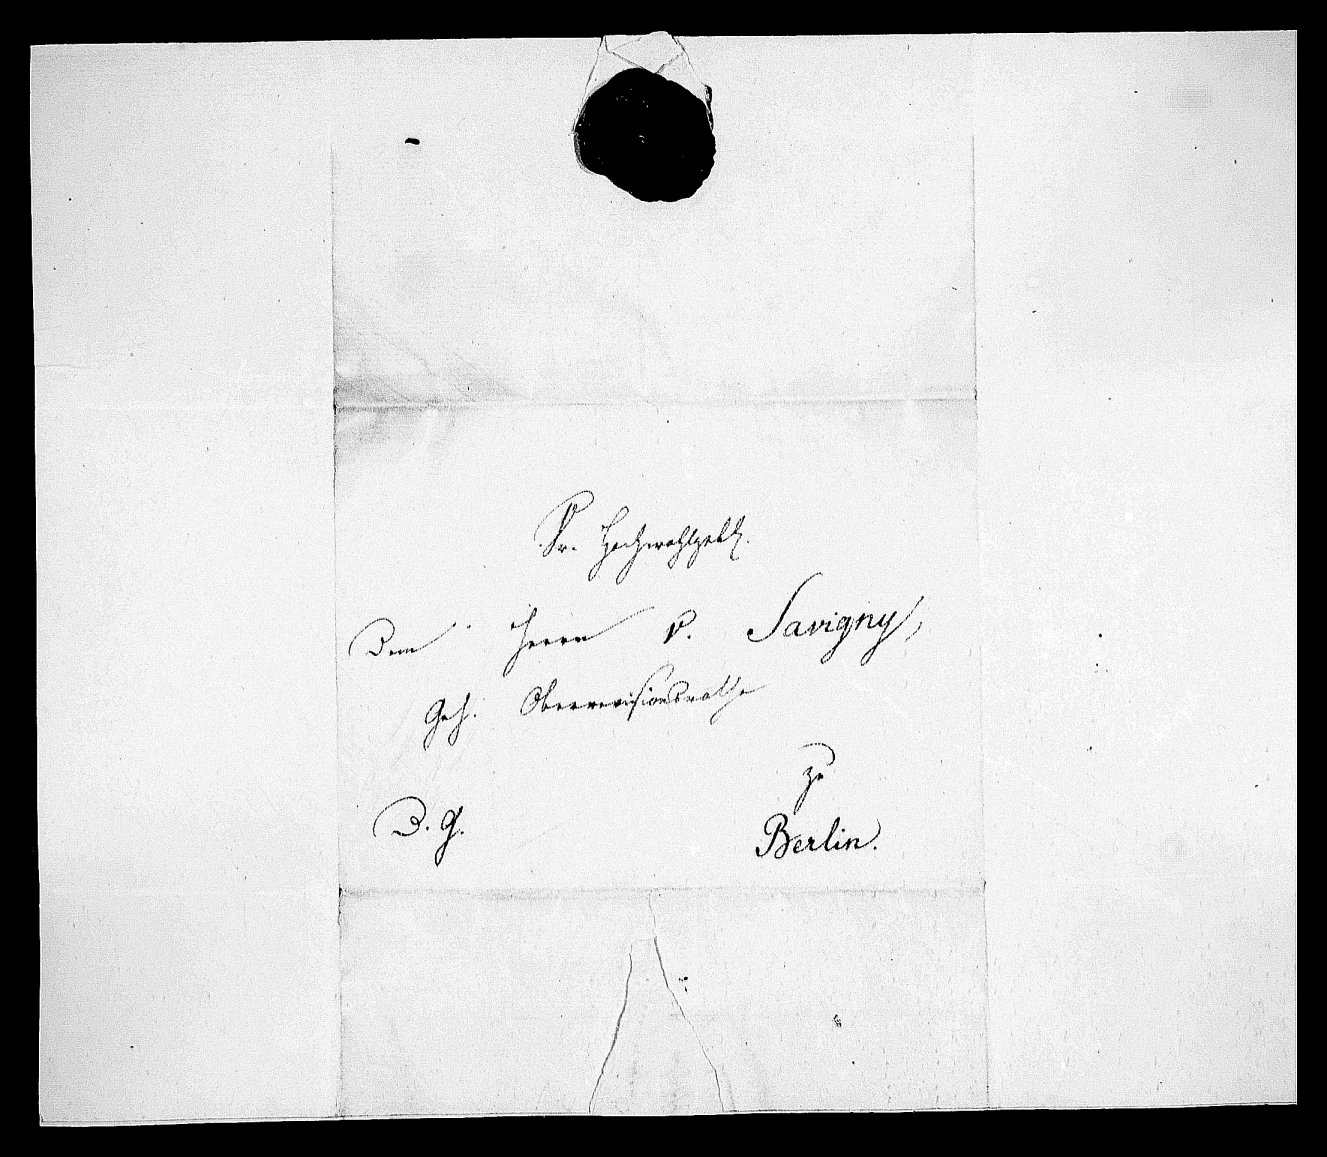 Sr. Hochwohlgeb.
Dem Herrn v. Savigny,
Geh. Oberrevisionsrathe
zu
D. G.
Berlin.